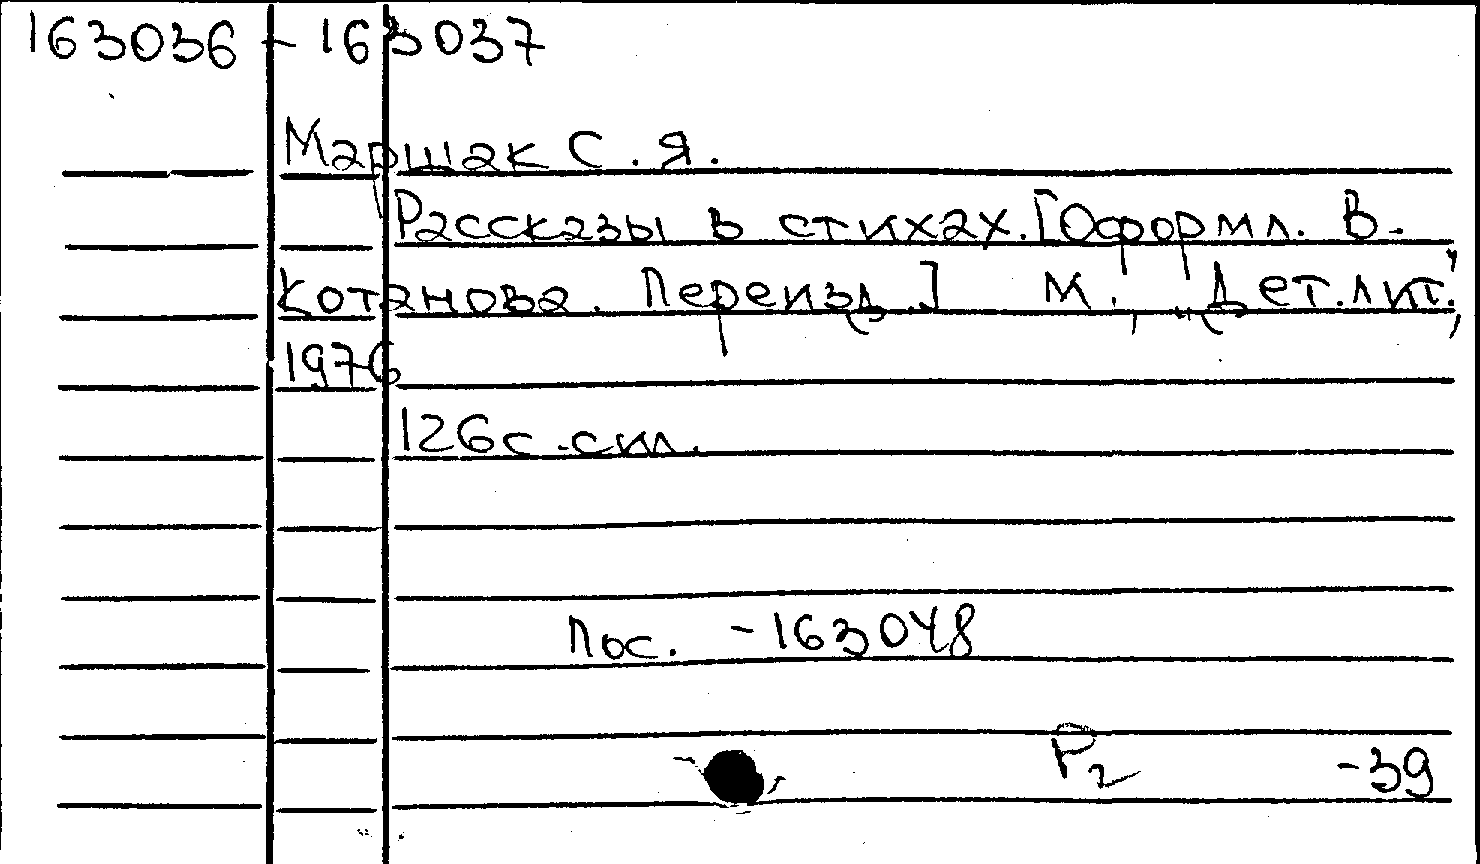 163036 - 163037
Маршак С. Я.
Рассказы в стихах. [Оформл. В.
Котанова. Переизд.] М., "Дет. лит.",
1976
126 с. с ил.
Пос. - 163048
Р2 -39